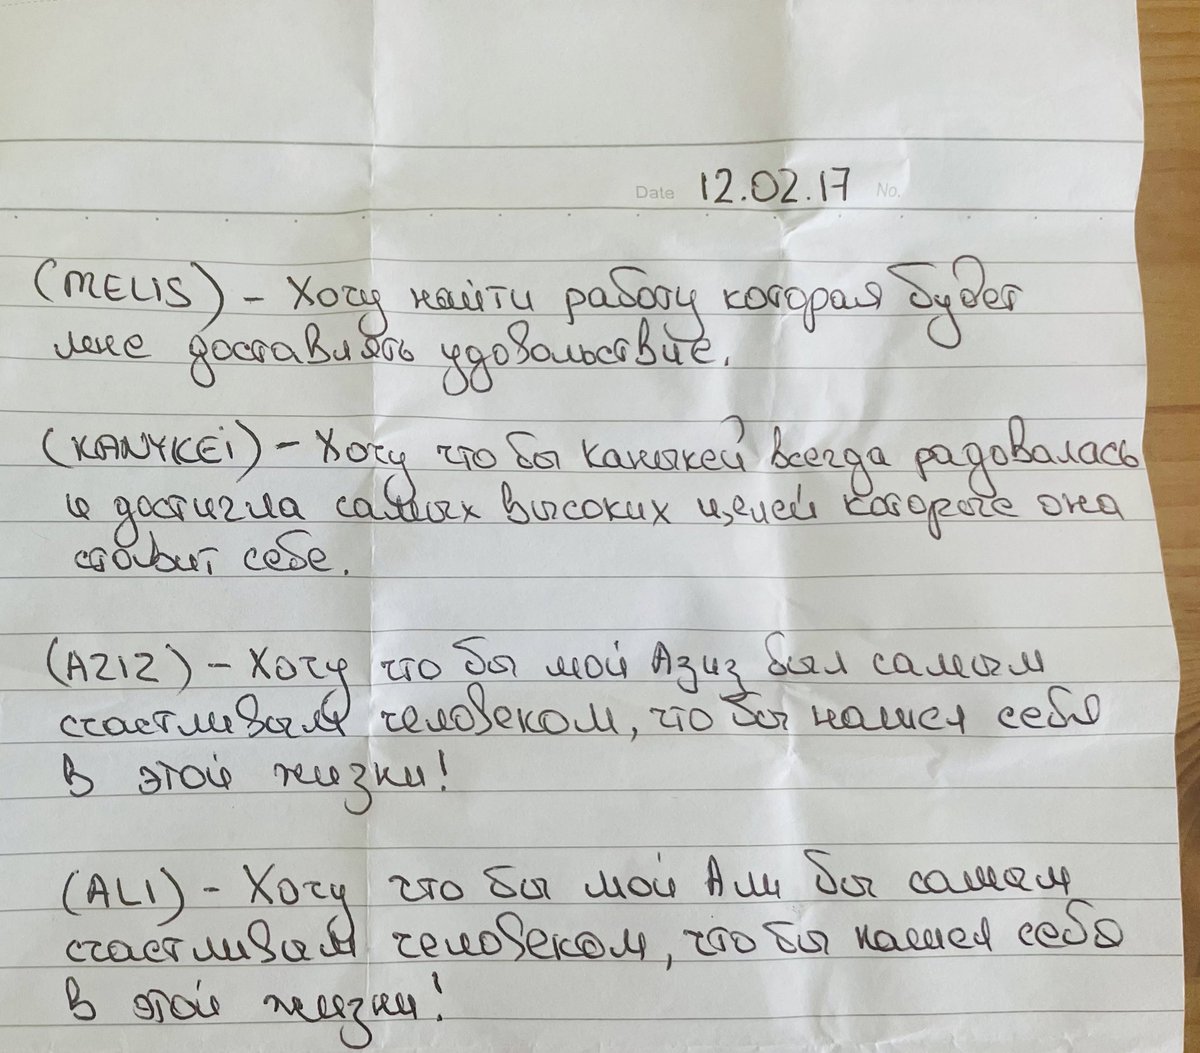 Date 12.02.17 No.
(MELIS) - Хочу найти работу которая будет
мне доставлять удовольствие.
(KANYKEI) - Хочу что бы Каныкей всегда радовалась
и достигла самых высоких целей которые она
ставит себе.
(AZIZ) - Хочу что бы мой Азиз был самым
счастливым человеком, что бы нашел себя
в этой жизни!
(ALI) - Хочу что бы мой Али бы самым
счастливым человеком, что бы нашел себя
в этой жизни!